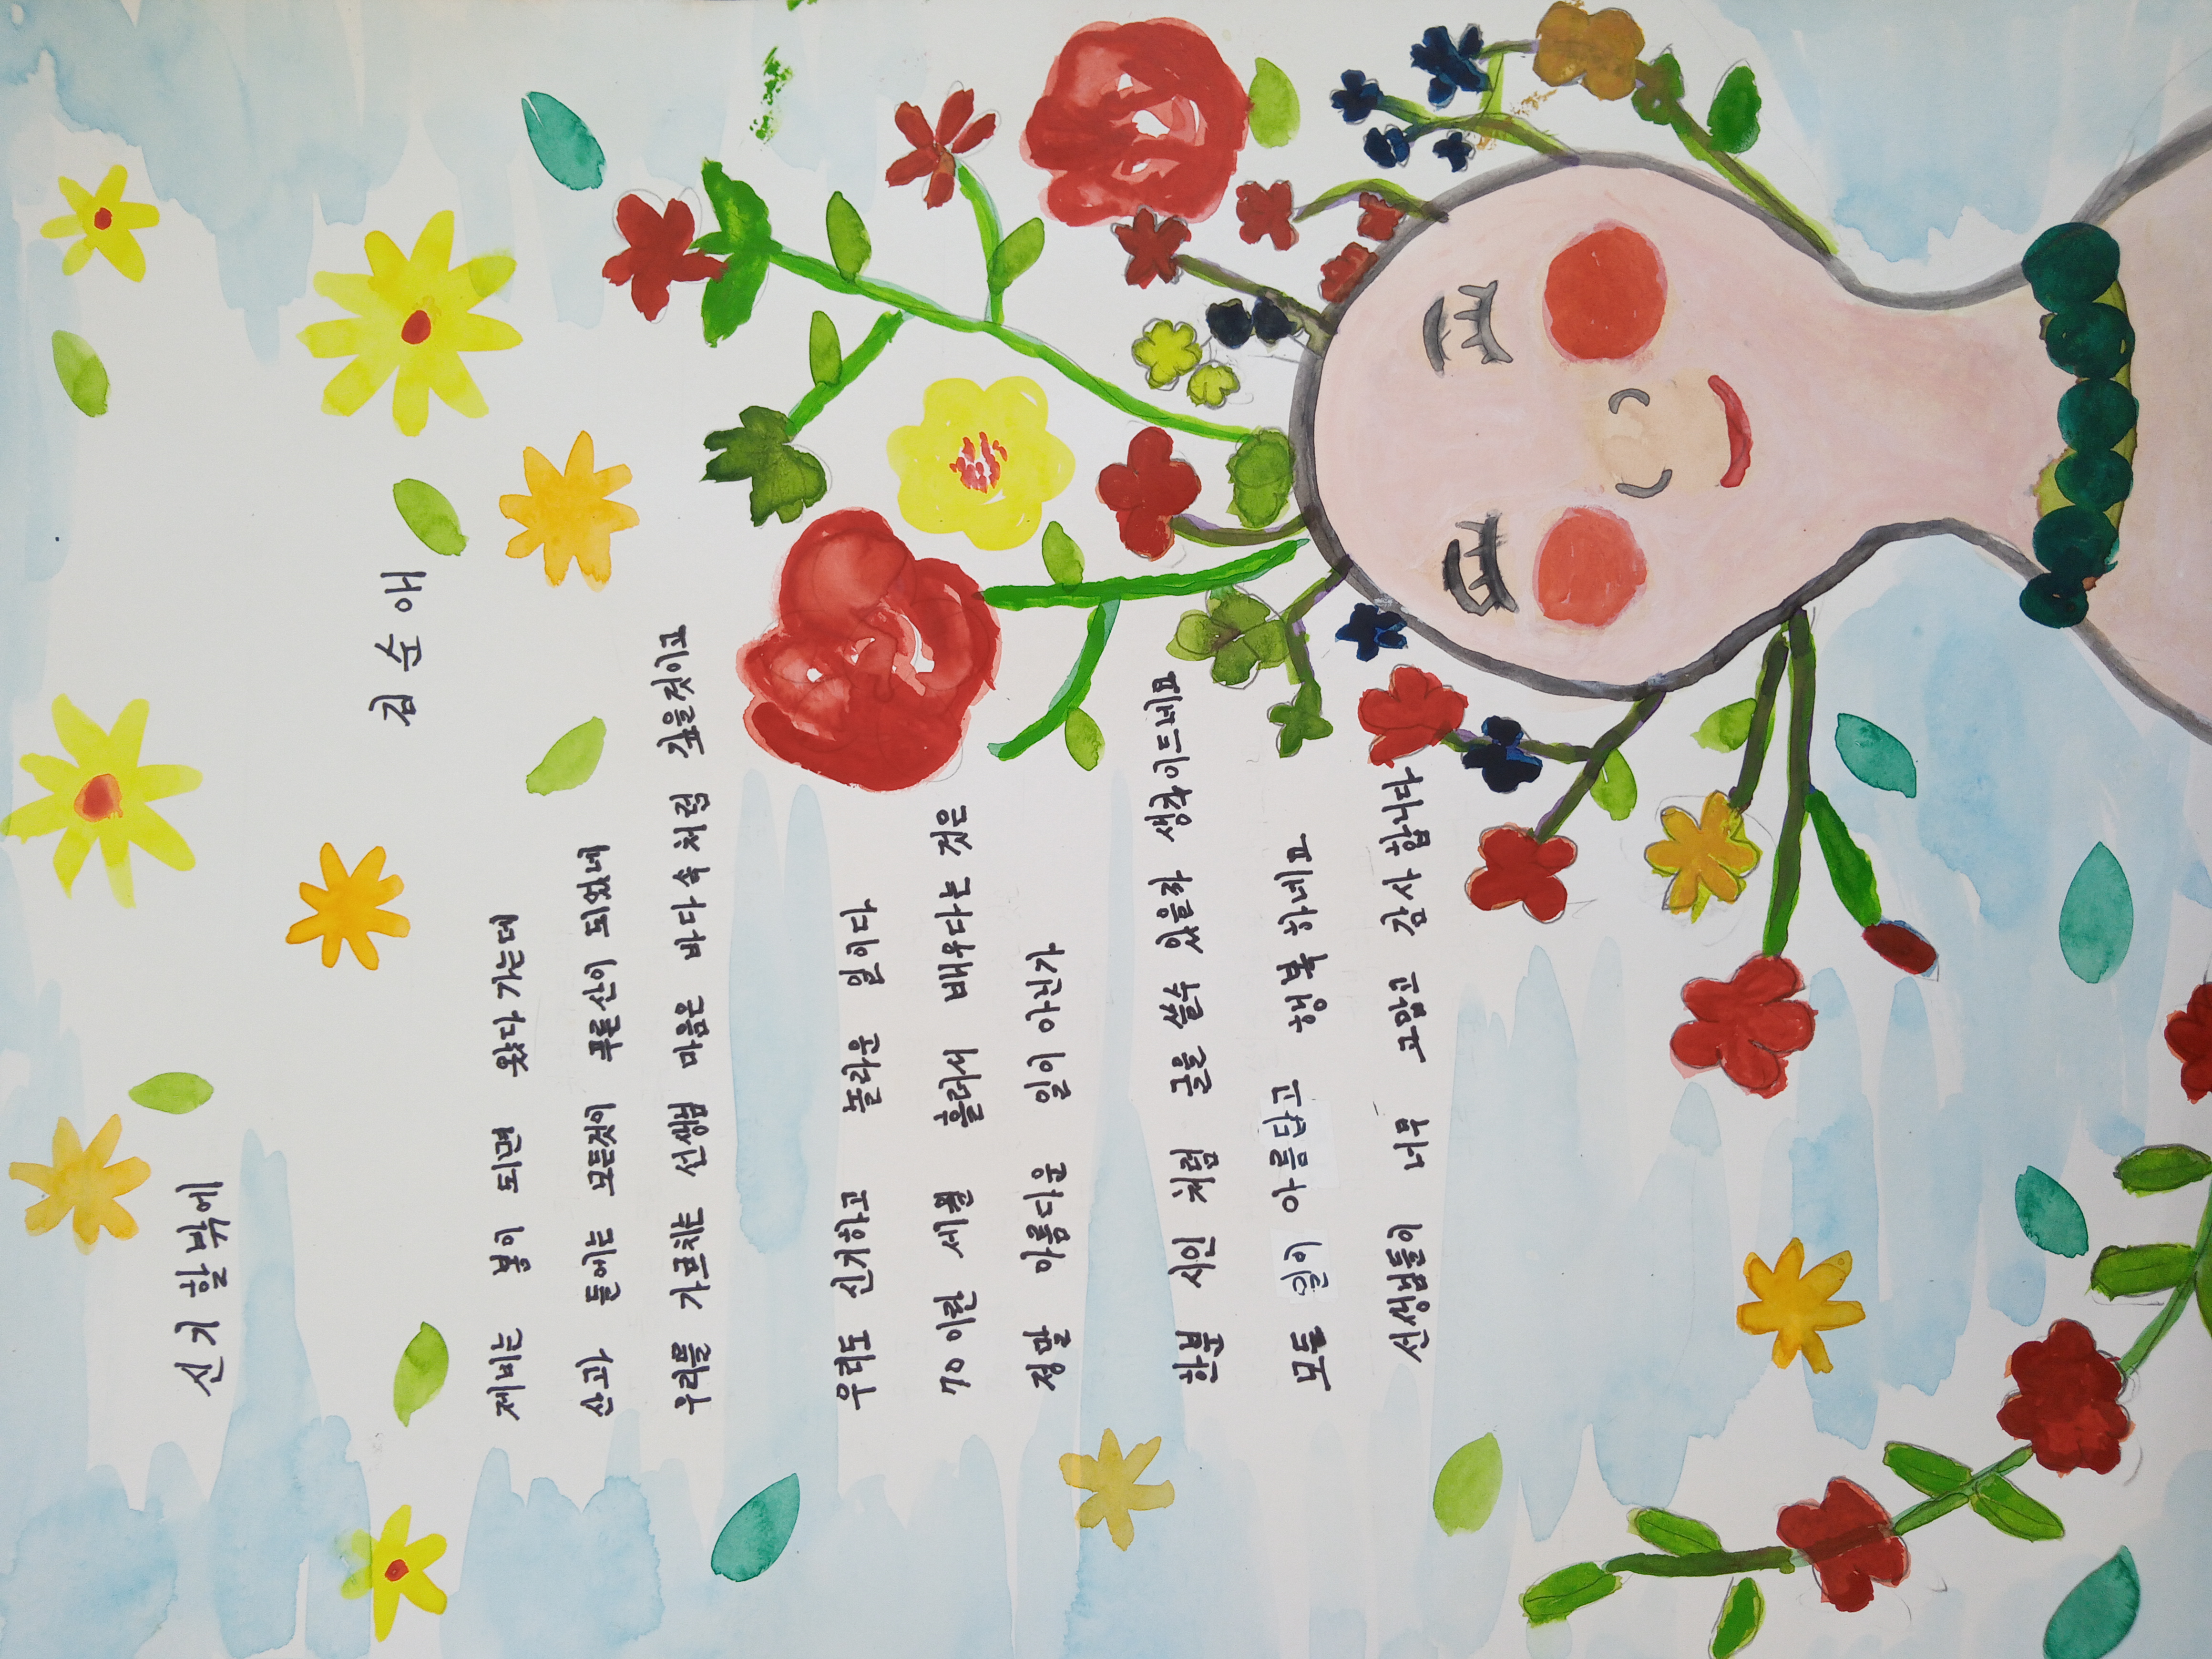 신기 할밖에
김 순 애
제비는 봄이 되면 왔다가는데
산과 들에는 모든것이 푸른산이 되었네
우리를 가르치는 선생님 마음은 바다속 처럼 깊을것이고
우리도 신기하고 놀라운 일이다
70이란 세월 흘러서 배우다는 것은
정말 아름다운 일이 아닌가
한분 시인 처럼 글을 쓸수 있을까 생각이드네요
모든 일이 아름답고 행복 하네요
선생님들이 너무 고맙고 감사합니다